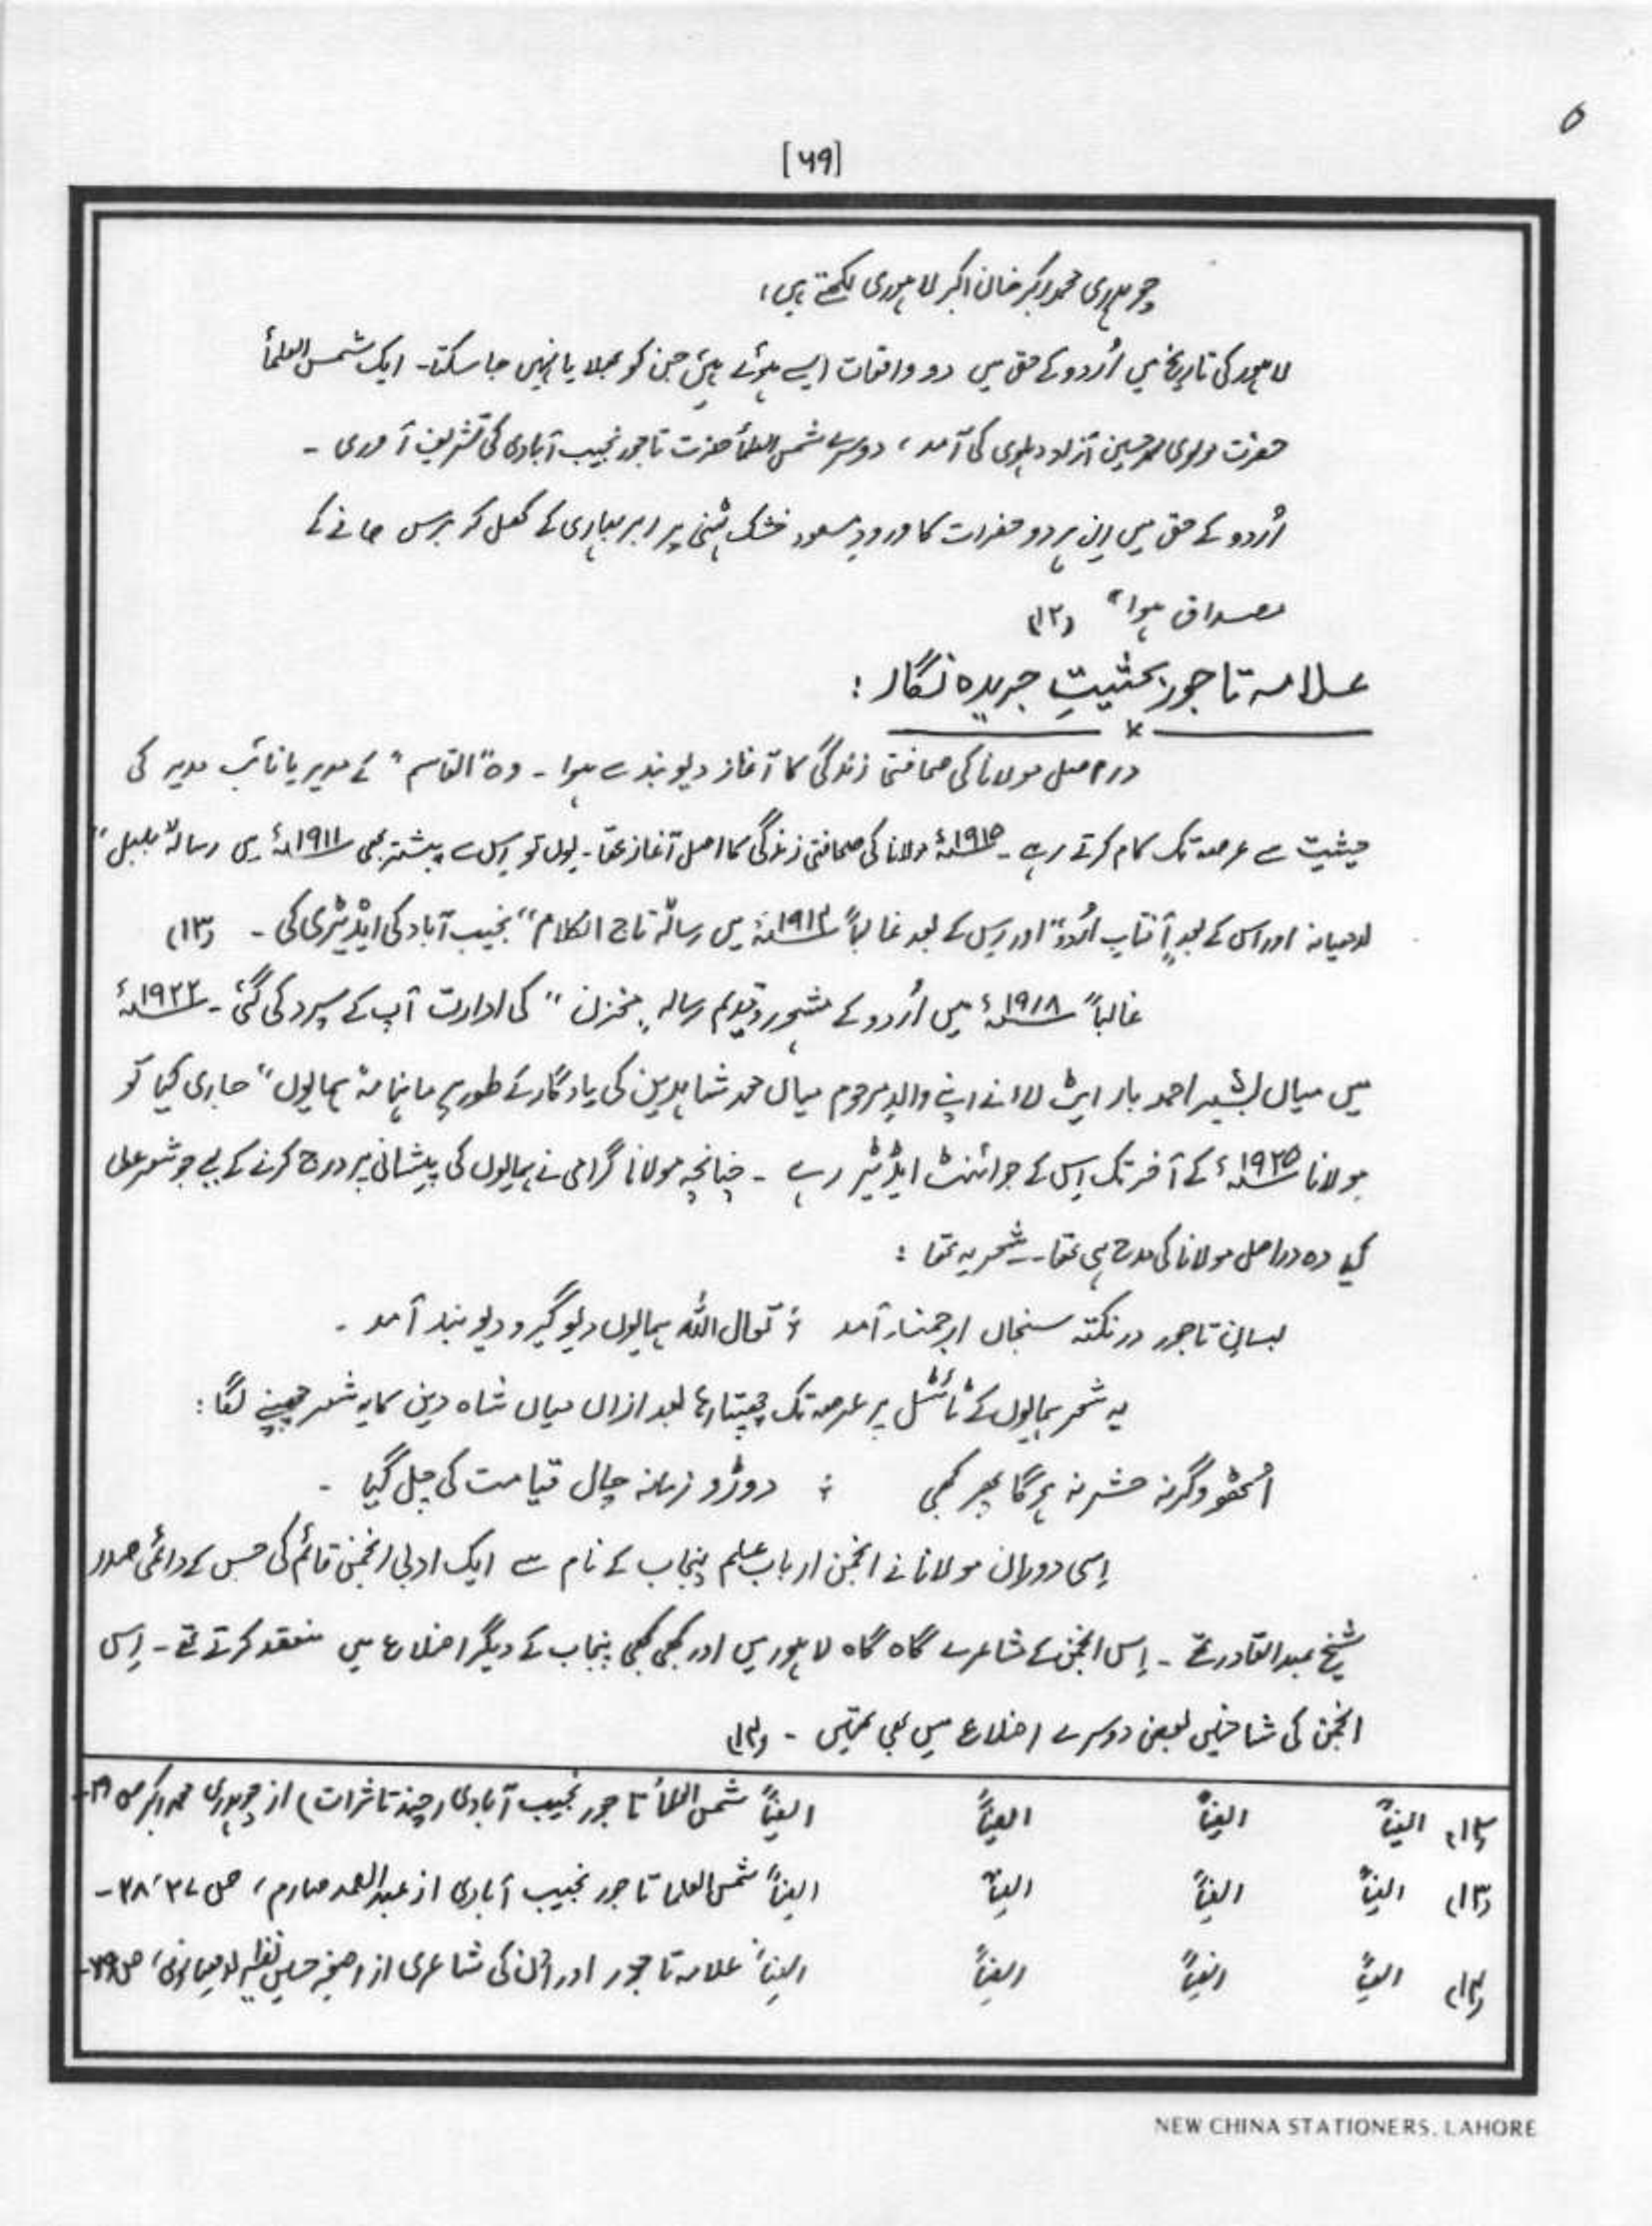 ۵
[۶۹]
چوہدری محمد اکبر خان اکبر لاہوری لکھتے ہیں،
لاہور کی تاریخ میں اُردو کے حق میں دو واقعات ایسے ہوئے ہیں جن کو بھلایا نہیں جا سکتا۔ ایک شمس العلمأ
حضرت مولوی محمد حسین آزاد دہلوی کی آمد، دوسرے شمس العلمأ حضرت تاجور نجیب آبادی کی تشریف آوری ۔
اُردو کے حق میں اِن ہر دو حضرات کا ورودِ مسعود خشک ٹہنی پر ابر بہاری کے کھل کر برس جانے کے
مصداق ہوا" (۱۲)
علامہ تاجور بحثیتِ جریدہ نگار :
دراصل مولانا کی صحافتی زندگی کا آغاز دیوبند سے ہوا ۔ وہ "القاسم" کے مدیر یا نائب مدیر کی
حیثیت سے عرصہ تک کام کرتے رہے ۔ ۱۹۱۵ء مولانا کی صحافتی زندگی کا اصل آغاز تھا۔ یوں تو اِس سے پیشتر بھی ۱۹۱۱ء میں رسالہ "بلبل"
لدھیانہ اور اس کے بعد "آفتابِ اُردو" اور اِس کے بعد غالباً ۱۹۱۴ء میں رسالہ "تاج الکلام" نجیب آباد کی ایڈیٹری کی ۔ (۱۳)
غالباً ۱۹۱۸ء میں اُردو کے مشہور و قدیم رسالہ "مخزن" کی ادارت آپ کے سپرد کی گئی ۔ ۱۹۲۲ء
میں میاں بشیر احمد بار ایٹ لاء نے اپنے والدِ مرحوم میاں محمد شاہدین کی یادگار کے طور پر ماہنامہ "ہمایوں" جاری کیا تو
مولانا ۱۹۲۵ء کے آخر تک اِس کے جوائنٹ ایڈیٹر رہے ۔ چنانچہ مولانا گرامی نے ہمایوں کی پیشانی پر درج کرنے کے لیے جو شعر عطا
کیا وہ دراصل مولانا کی مدح ہی تھا ۔ شعر یہ تھا :
بسانِ تاجور در نکتہ سنجاں ارجمند آمد ؛ تعال اللہ ہمایوں دیو گیر و دیوبند آمد ۔
یہ شعر ہمایوں کے ٹائٹل پر عرصہ تک چھپتا رہا بعد ازاں میاں شاہ دین کا یہ شعر چھپنے لگا :
اُٹھو وگرنہ حشر نہ ہوگا پھر کبھی ؛ دوڑو زمانہ چال قیامت کی چل گیا ۔
اِسی دوران مولانا نے انجمن اربابِ علم پنجاب کے نام سے ایک ادبی انجمن قائم کی جس کے دائمی صدر
شیخ عبدالقادر تھے ۔ اِس انجمن کے مشاعرے گاہ گاہ لاہور میں اور کبھی کبھی پنجاب کے دیگر اضلاع میں منعقد کرتے تھے ۔ اِس
انجمن کی شاخیں بعض دوسرے اضلاع میں بھی تھیں ۔ (۱۴)
(۱۲) ایضاً ایضاً ایضاً ایضاً شمس العلمأ تاجور نجیب آبادی (چند تاثرات) از چوہدری محمد اکبر ص
(۱۳) ایضاً ایضاً ایضاً ایضاً شمس العلما تاجور نجیب آبادی از عبدالصمد صارم، ص ۳۷،۳۸ ۔
(۱۴) ایضاً ایضاً ایضاً ایضاً علامہ تاجور اور اُن کی شاعری از اصغر حسین نظیر لدھیانوی، ص
NEW CHINA STATIONERS, LAHORE